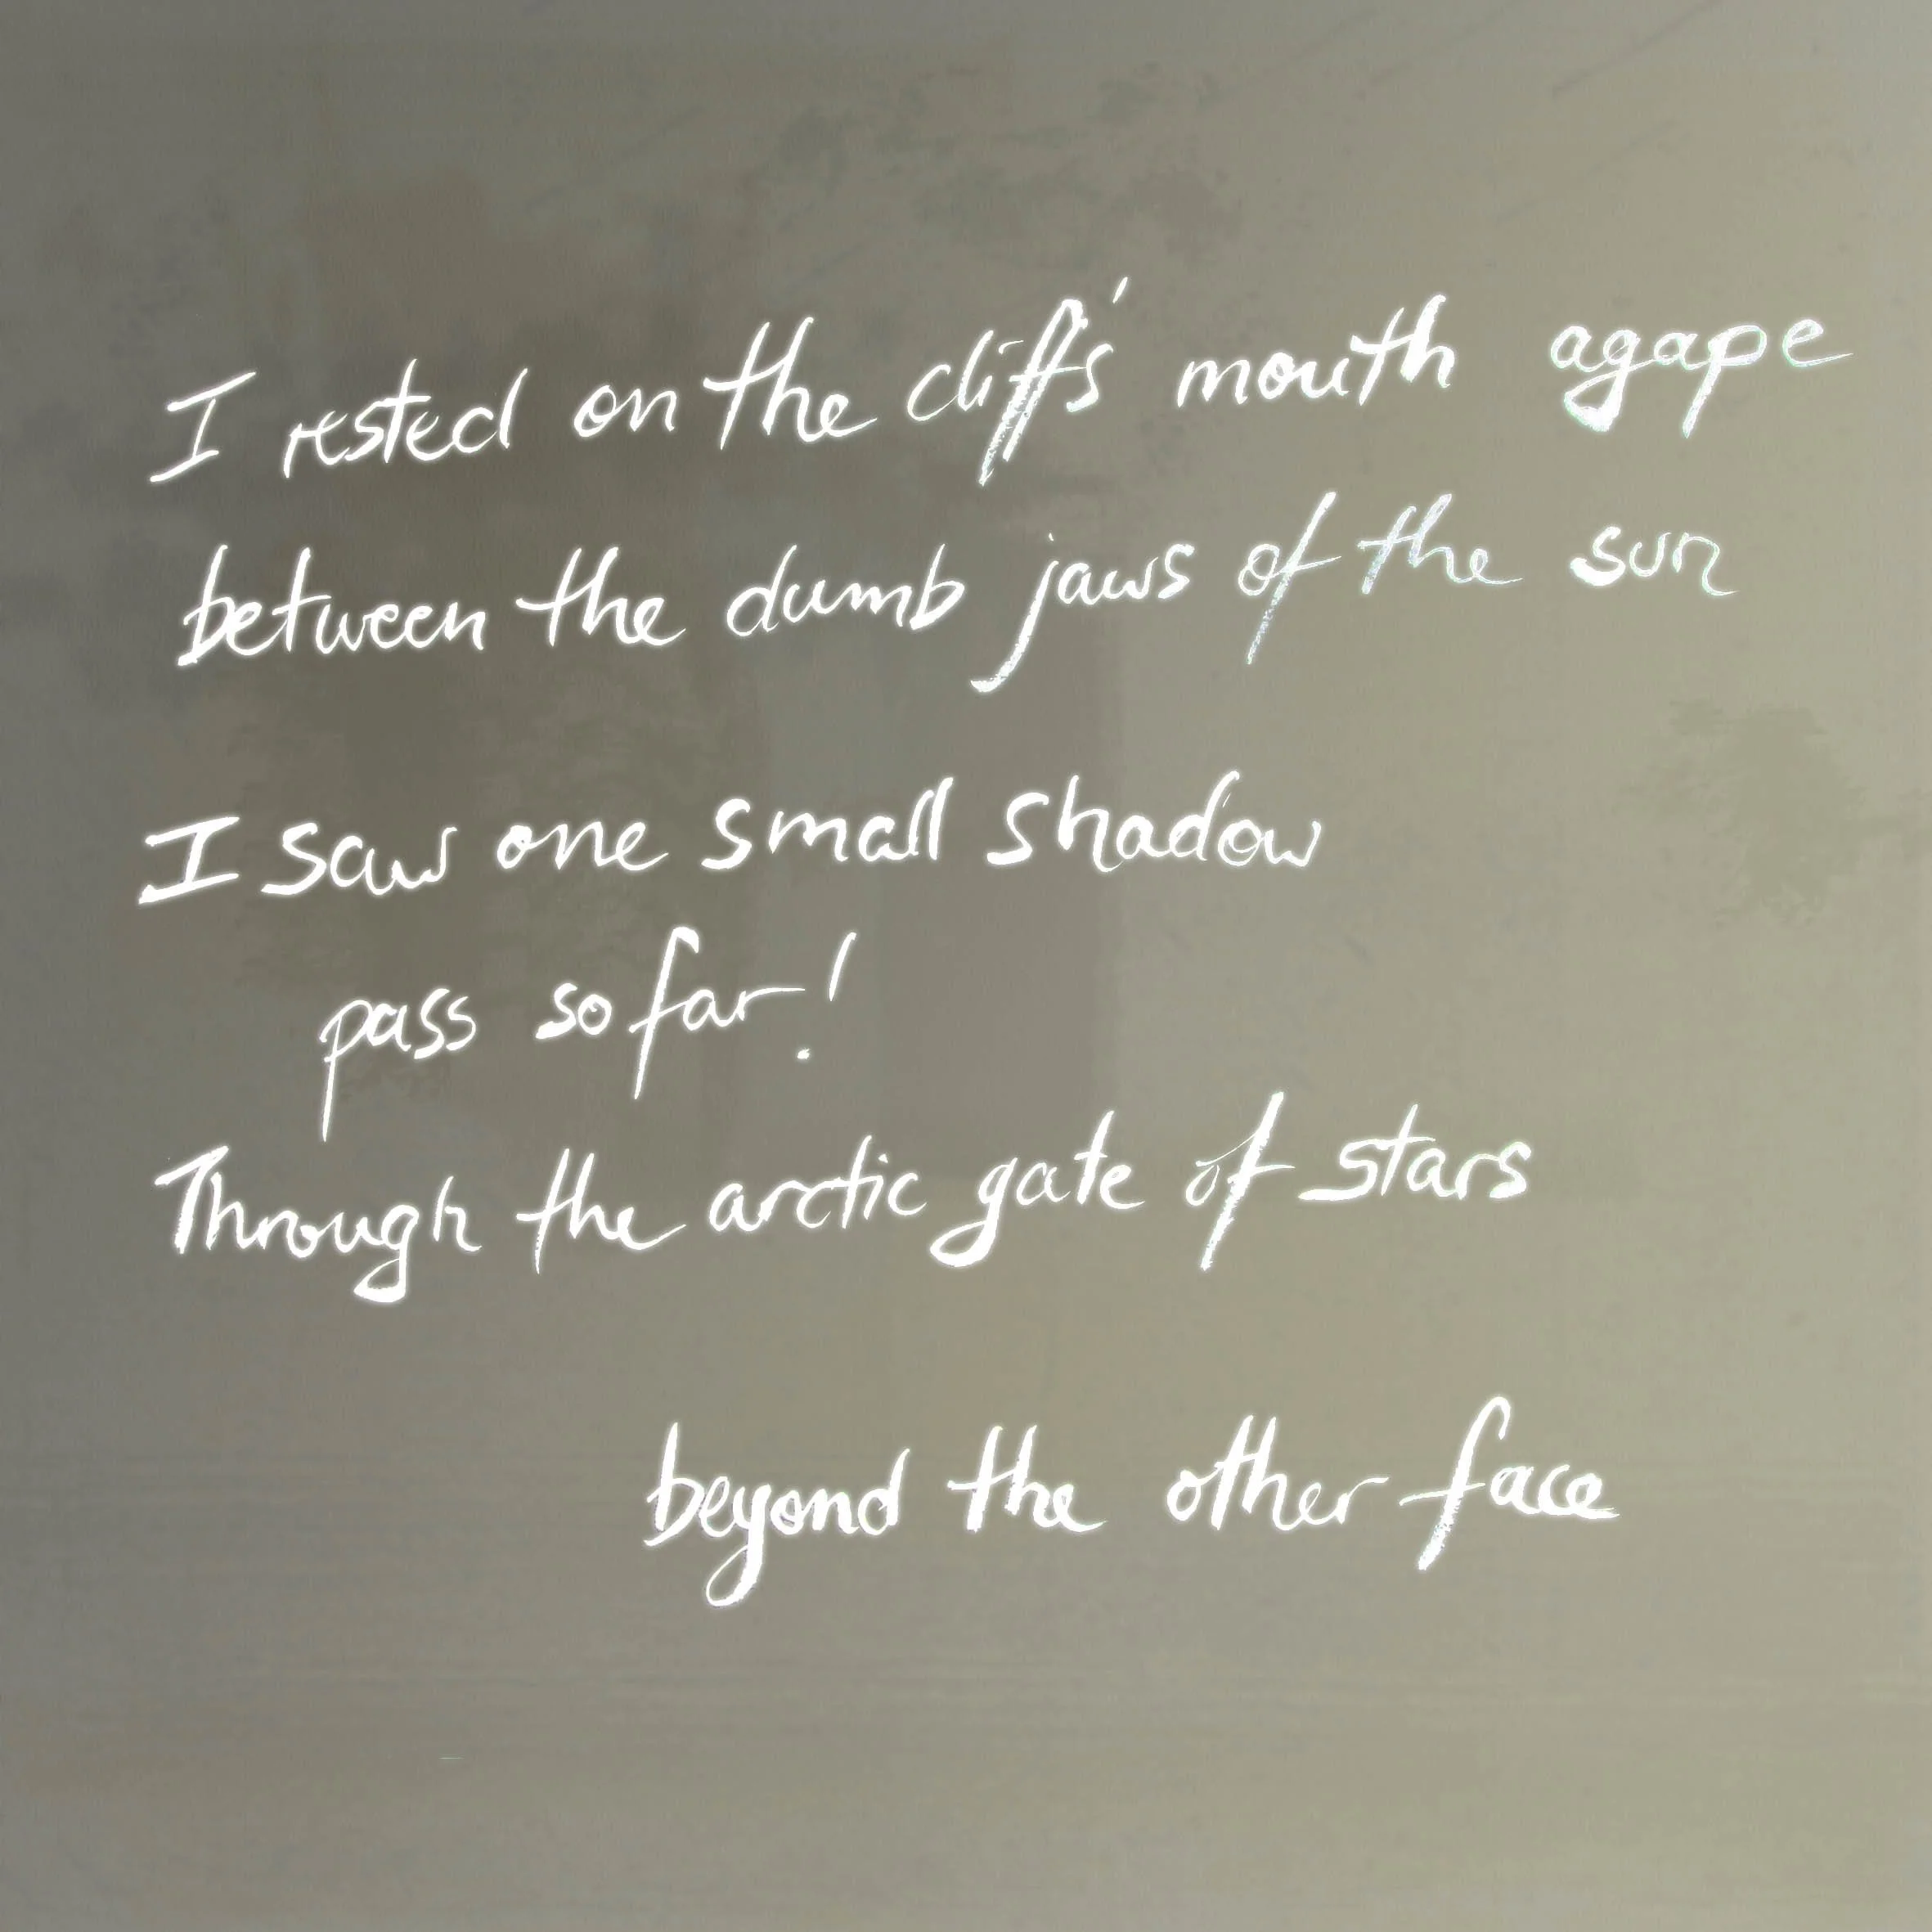 I rested on the cliff's mouth agape
between the dumb jaws of the sun
I saw one small shadow
pass so far!
Through the arctic gate of stars
beyond the other face